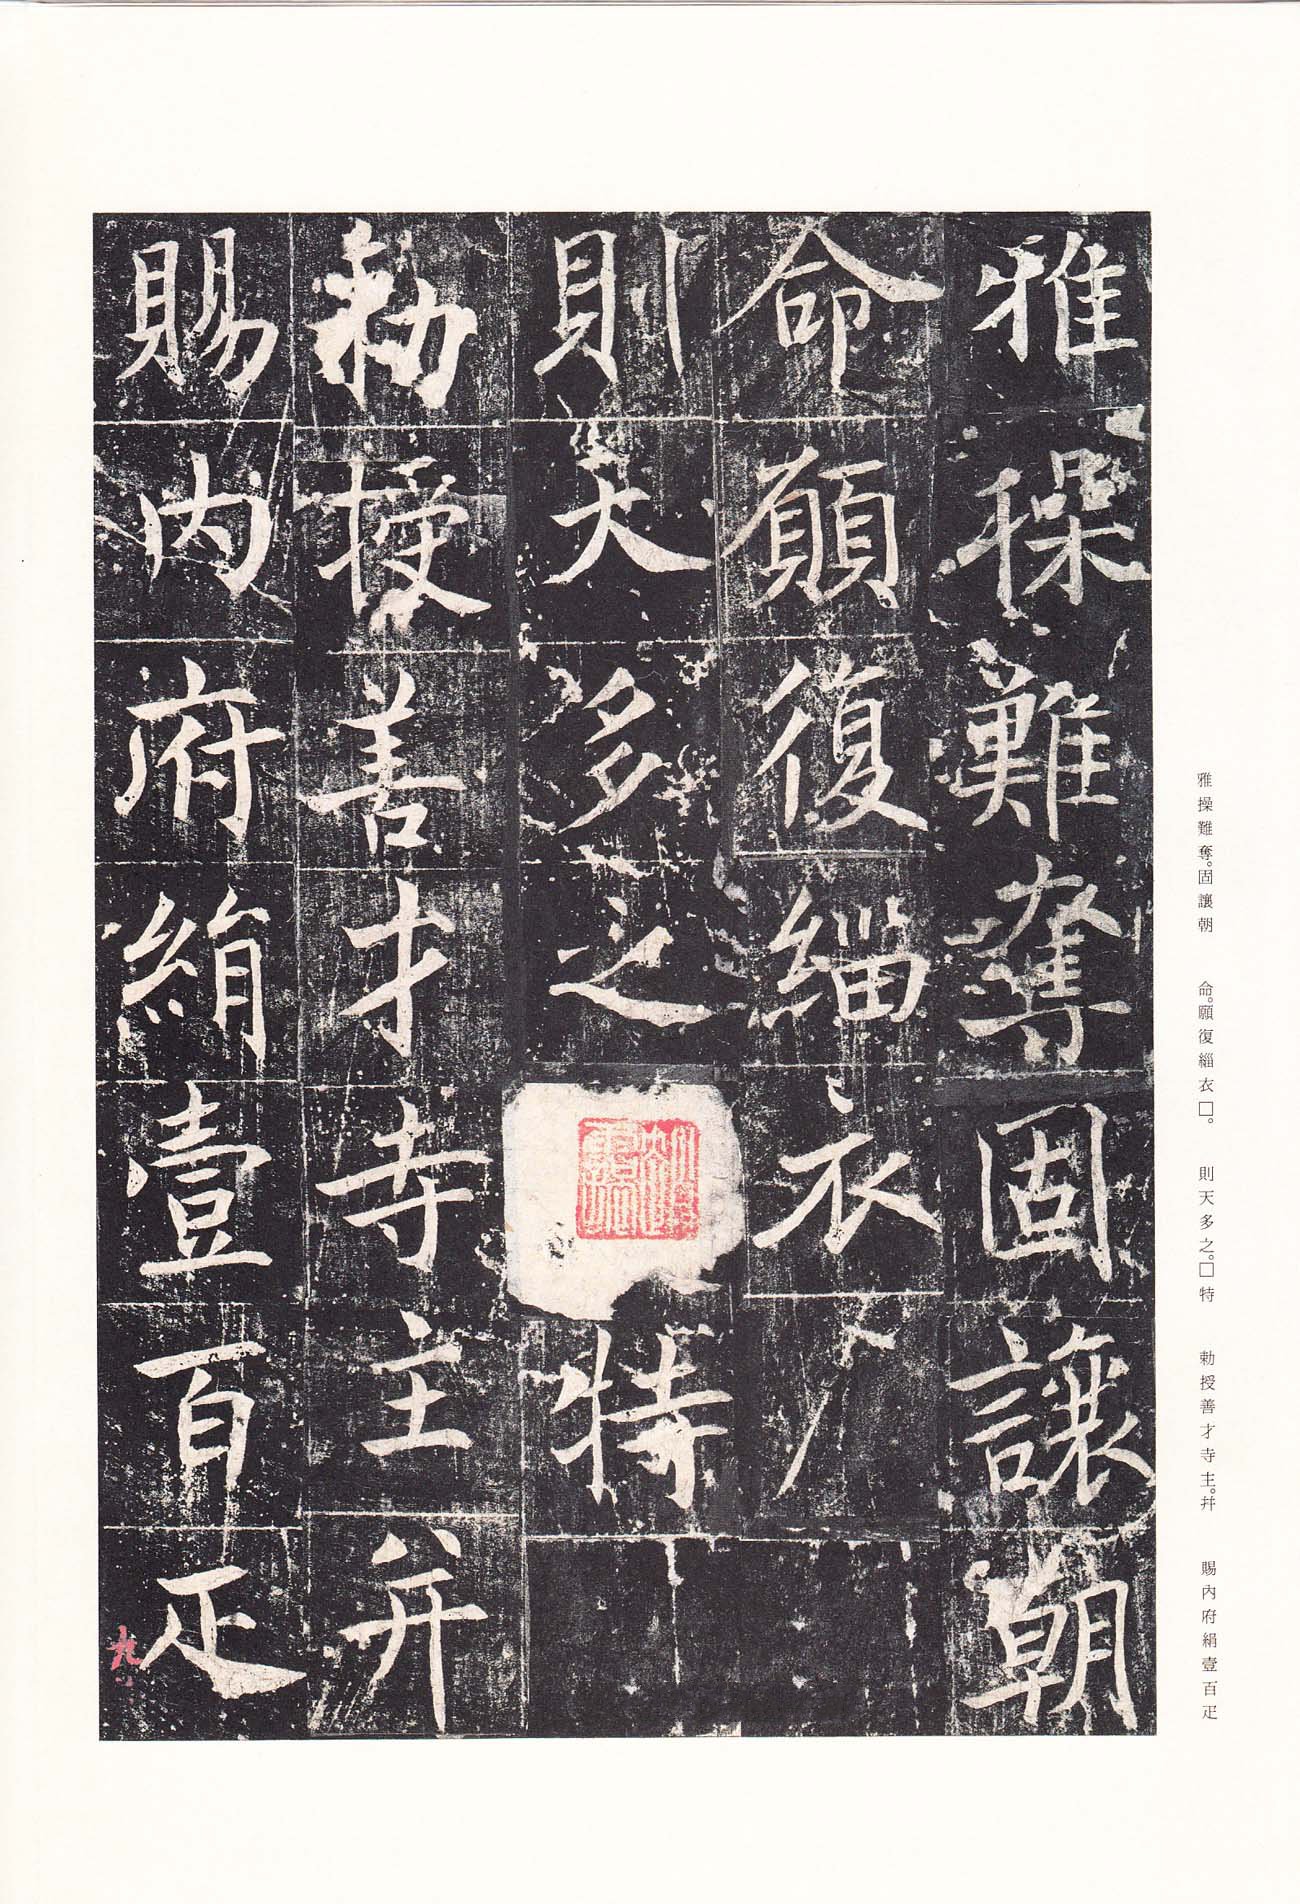 雅操難奪。固讓朝　命。願復緇衣□。　則天多之。□特　勅授善才寺主。幷　賜内府絹壹百疋
雅操難奪固讓朝
命願復緇衣
則天多之特
勅授善才寺主并
賜内府絹壹百疋